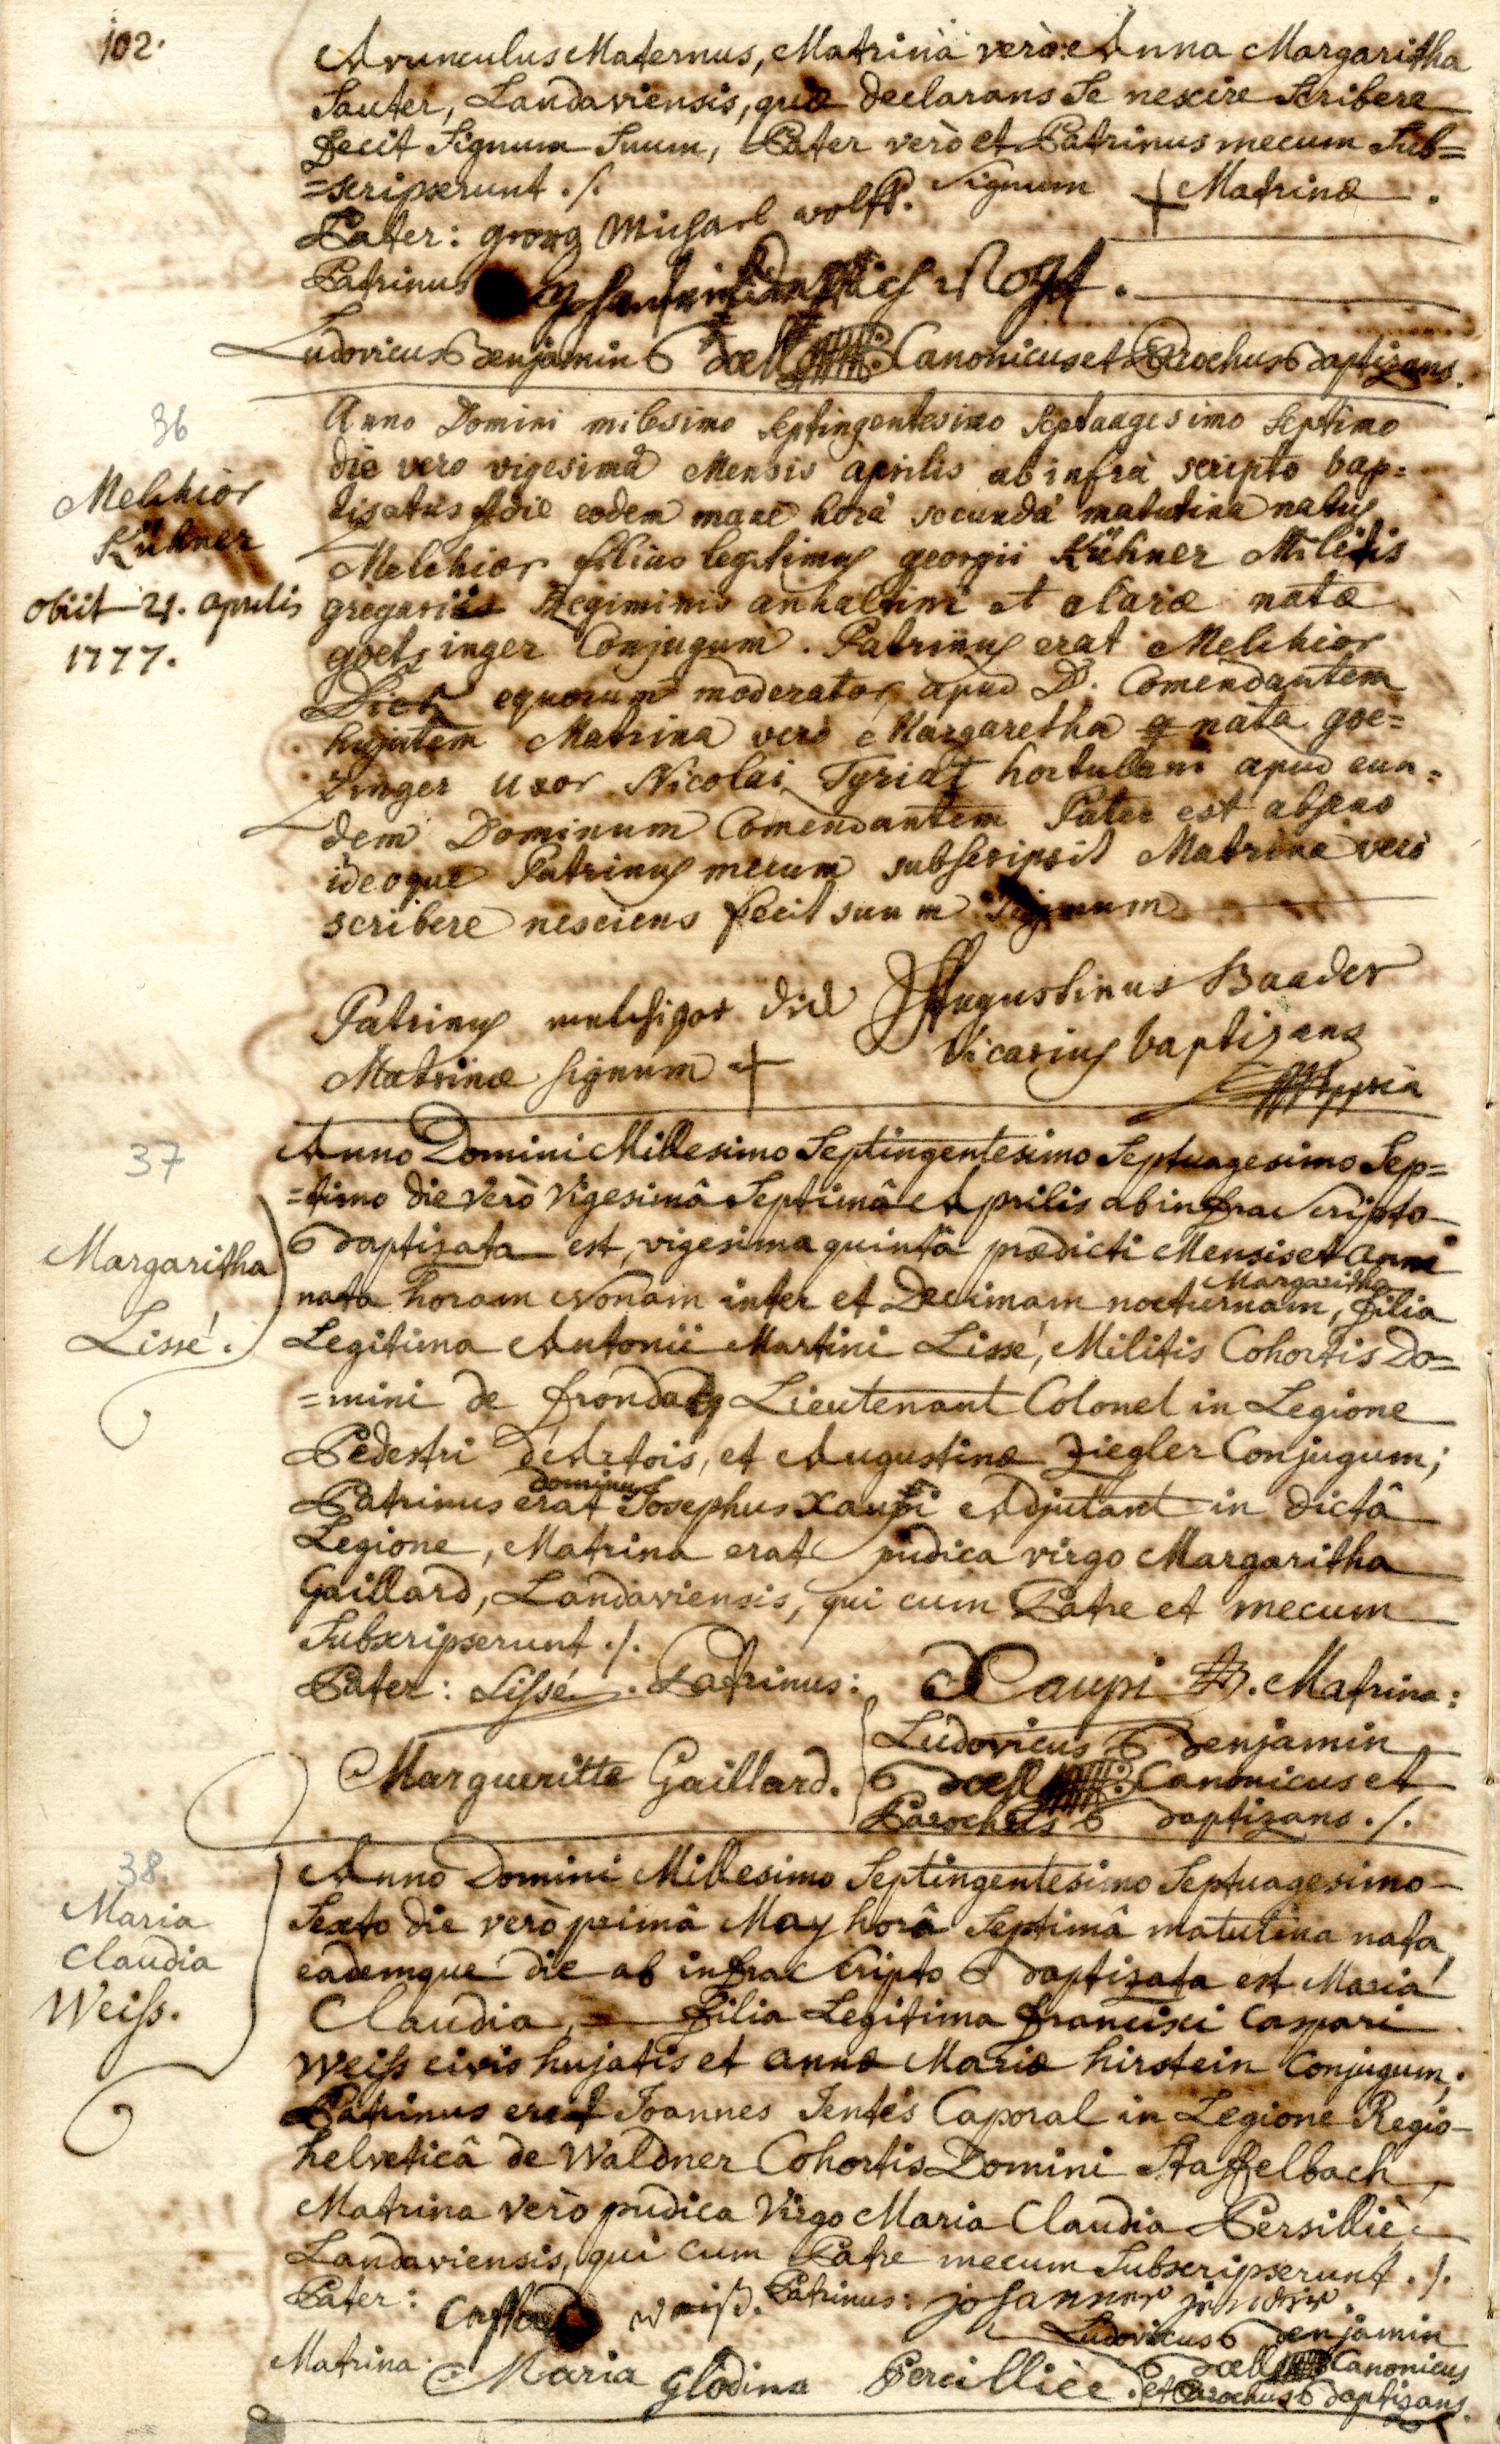 102.
Avunculus Maternus, Matrina verò Anna Margaritha
Sauter, Landaviensis, quæ declarans Se nescire Scribere
fecit Signum Suum, Pater verò et Patrinus mecum Sub=
=scripserunt ./. Signum + Matrinæ.
Pater: georg Michael wolff.
Patrinus
Ludovicus Benjamin Boell Canonicus et Parochus Baptizans.
36
Melchior
Kühner
obiit 21. aprilis
1777.
Anno Domini milesimo Septingentesimo Septuagesimo Septimo
die vero vigesimâ Mensis aprilis ab infrà scripto bap=
tisatus et die eodem mane horâ secundâ matutina natus
Melchior filius legitimus georgii Kühner Militis
gregarii Regiminis anhaltini et claræ natæ
goetzinger Conjugum. Patrinus erat Melchior
Dich equorum moderator apud D. Comendantem
hujatem Matrina verò Margaretha g nata goe=
zinger uxor Nicolai Tyriat hortulani apud eun=
dem Dominum Comendantem Pater est absens
ideoque Patrinus mecum subscripsit Matrina verò
scribere nesciens fecit suum signum
Patrinus melchior Augustinus Baader
Matrinæ signum + Vicarius baptizans
37
Margaritha
Lissé.
Anno Domini Millesimo Septingentesimo Septuagesimo Sep=
=timo die verò Vigesimâ Septimâ Aprilis ab infra Scripto
Baptizata est, vigesima quintâ prædicti Mensis et anni
nata horam Nonam inter et Decimam nocturnam, Margaritha filia
Legitima Antonii Martini Lissé, Militis Cohortis Do=
=mini de Lieutenant Colonel in Legione
Pedestri d'Artois, et Augustinæ Ziegler Conjugum;
Patrinus erat dominus Josephus Xaupi Adjutant in dictâ
Legione, Matrina erat pudica virgo Margaritha
Gaillard, Landaviensis, qui cum Patre et mecum
Subscripserunt ./.
Pater: Lissé. Patrinus: Xaupi. Matrina:
Margueritte Gaillard.
Ludovicus Benjamin
Boell Canonicus et
Parochus Baptizans ./.
38.
Maria
Claudia
Weiss.
Anno Domini Millesimo Septingentesimo Septuagesimo
Sexto die verò primâ May horâ Septimâ matutina nata,
eademque die ab infra Scripto Baptizata est Maria
Claudia, filia Legitima francisci Caspari
Weiss civis hujatis et annæ Mariæ hirstein Conjugum;
Patrinus erat Joannes Jentés Caporal in Legione Regio
helveticâ de Waldner Cohortis Domini Staffelbach,
Matrina verò pudica Virgo Maria Claudia Persilliè
Landaviensis, qui cum Patre mecum Subscripserunt ./.
Pater: weiß. Patrinus: johannes
Matrina Maria Glodina Percilliée.
Ludovicus Benjamin
Boell Canonicus
et Parochus Baptizans.